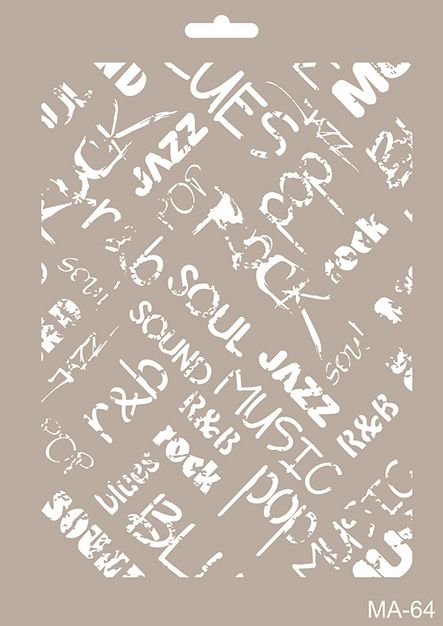 BLUES
JAZZ
JAZZ
ROCK
POP
POP
ROCK
rock
r&b
soul
SOUL
SOUND
JAZZ
soul
JAZZ
r&b
MUSIC
R&B
R&B
POP
rock
blues
pop
MUSIC
SOUND
MA-64